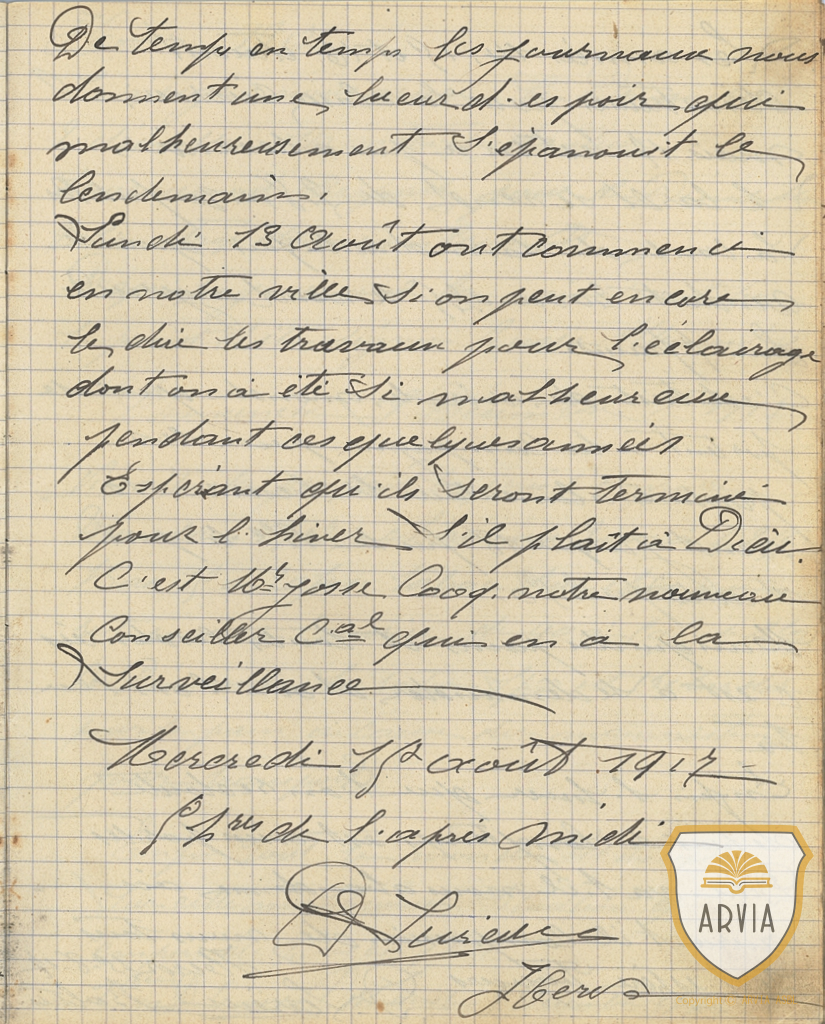 De temps en temps les journaux nous
donnent une lueur d'espoir qui
malheureusement s'épanouit le
lendemain.
Lundi 13 Août ont commencé
en notre ville, si on peut encore
le dire les travaux pour l'éclairage
dont on a été si malheureux
pendant ces quelques années.
Espérant qu'ils seront terminé
pour l'hiver s'il plaît à Dieu.
C'est Mr Josse Cooq. notre nouveau
Conseiller Cal qui en a la
surveillance
Mercredi 15 août 1917 -
5 hres de l'après midi
ARVIA